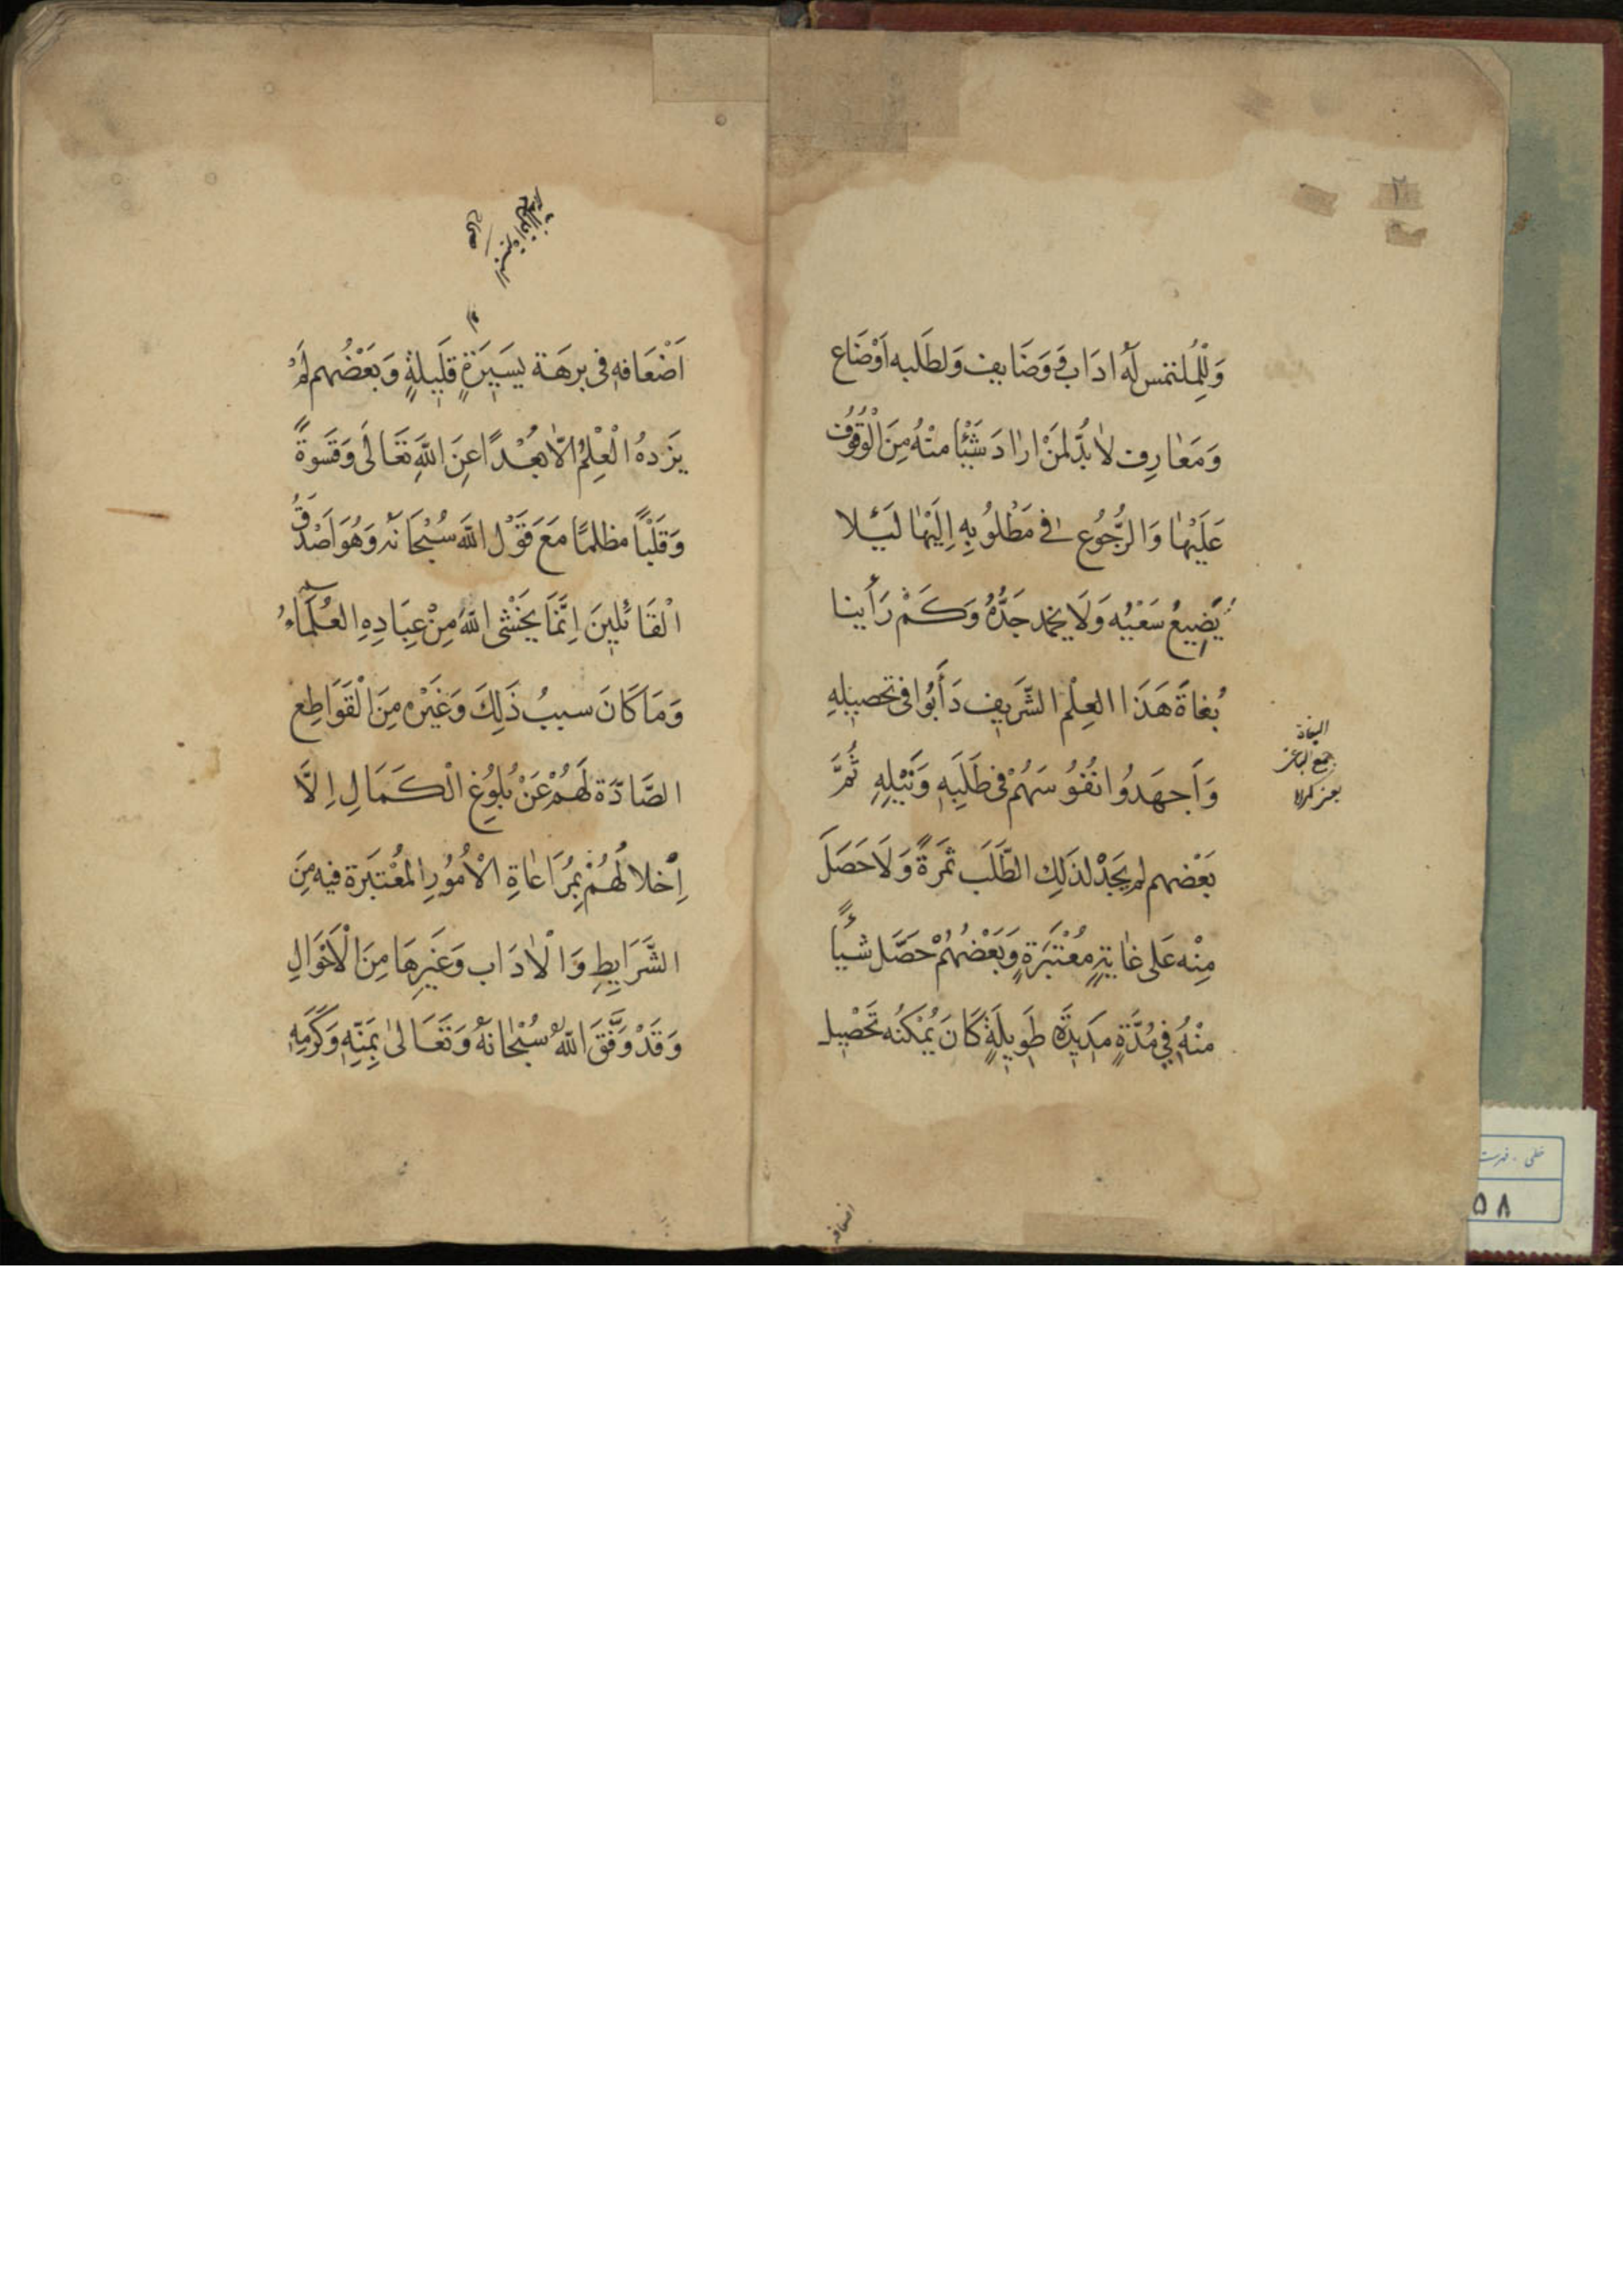 ٢
وَلِلْمُلتَمِسِ لَهُ ادَابٌ وَوَضَايِف وَلطَلَبه اَوْضَاع
وَمَعٰارِف لاٰبُدَّ لمَنْ ارٰادَ شَيْئًا منْهُ مِنَ الْوُقُوُف
عَلَيْهٰا وَالرُّجُوُع فى مَطْلوُبِهِ اِلَيْهٰا لَئَلا
يَضِيعُ سَعْيُه وَلَا يخمد جَدُّهُ وَكَمْ رَأَينا
بُغاةَ هَذَا العِلْم الشَّرَيِف دَأَبُوا فى تحصيلِهِ
وَاَجهَدُوا نُفُوُسَهُمْ فى طَلَبِهِ وَنَيْلِهِ ثُمَّ
بَعْضهم لم يَجَدْ لذَلِك الطَّلَب ثَمَرةً وَلَا حَصَلَ
مِنْه عَلى غٰايَةٍ مُعْتَبَرَةٍ وَبَعْضُهُمْ حَصَّلَ شَيْأً
منْهُ فِى مُدَّةٍ مَدِيَدَةٍ طَوِيلَةٍ كَانَ يُمْكنُه تَحْصِيل
البغاة
جمع الباغى
اضعافه
اَضْعَافهِ فى برهَة يَسيَرَةٍ قَلِيلَةٍ وَبَعْضُهم لَمْ
يَزَدهُ الْعِلْمُ الّا بُعْدًا عِنَ اللّٰهِ تعَالَى وَقَسْوةً
وَقَلْبًا مظلمًا مَعَ قَوْل اللّٰه سُبْحَانَه وَهُوَ اَصْدَقُ
الْقَائلِينَ اِنَّمَا يَخْشٰى اللّٰهَ مِنْ عِبَادِهِ العُلَمٰٓاءُ
وَمَا كَانَ سببُ ذَلِكَ وَغَيْره مِنَ الْقَوَاطِع
الصَّادَّة لَهُمْ عَنْ بُلوُغِ الْكَمَالِ اِلَّا
اِخْلالُهُمْ بِمُرَاعٰاةِ الْاُمُورِ المُعْتَبَرة فيه مِنَ
الشَّرَايِطِ وَالْاٰدَاب وَغَيرِهَا مِنَ الْاَحْوَالِ
وَقَدْ وَفَّقَ اللّٰهُ سُبْحٰانَهُ وَتَعَالىٰ بِمَنِّهِ وَكَرَمِهِ
خطى - فهرست
٥٨